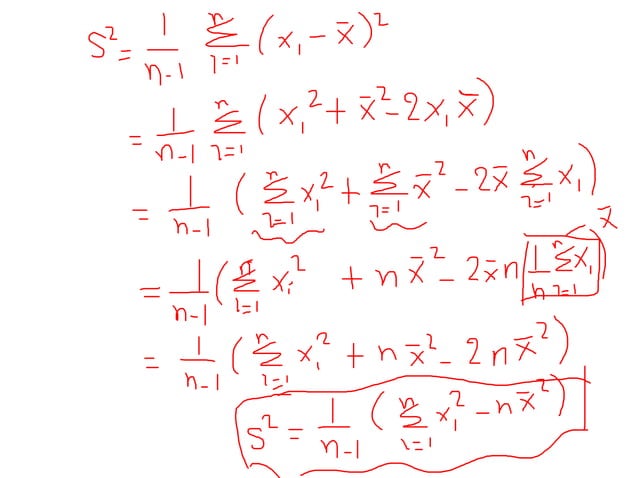 S² = 1/(n-1) Σ_{i=1}^{n} (x_i - x̄)²
= 1/(n-1) Σ_{i=1}^{n} (x_i² + x̄² - 2x_i x̄)
= 1/(n-1) (Σ_{i=1}^{n} x_i² + Σ_{i=1}^{n} x̄² - 2x̄ Σ_{i=1}^{n} x_i)
x̄
= 1/(n-1) (Σ_{i=1}^{n} x_i² + n x̄² - 2x̄ n 1/n Σ_{i=1}^{n} x_i)
= 1/(n-1) (Σ_{i=1}^{n} x_i² + n x̄² - 2n x̄²)
S² = 1/(n-1) (Σ_{i=1}^{n} x_i² - n x̄²)